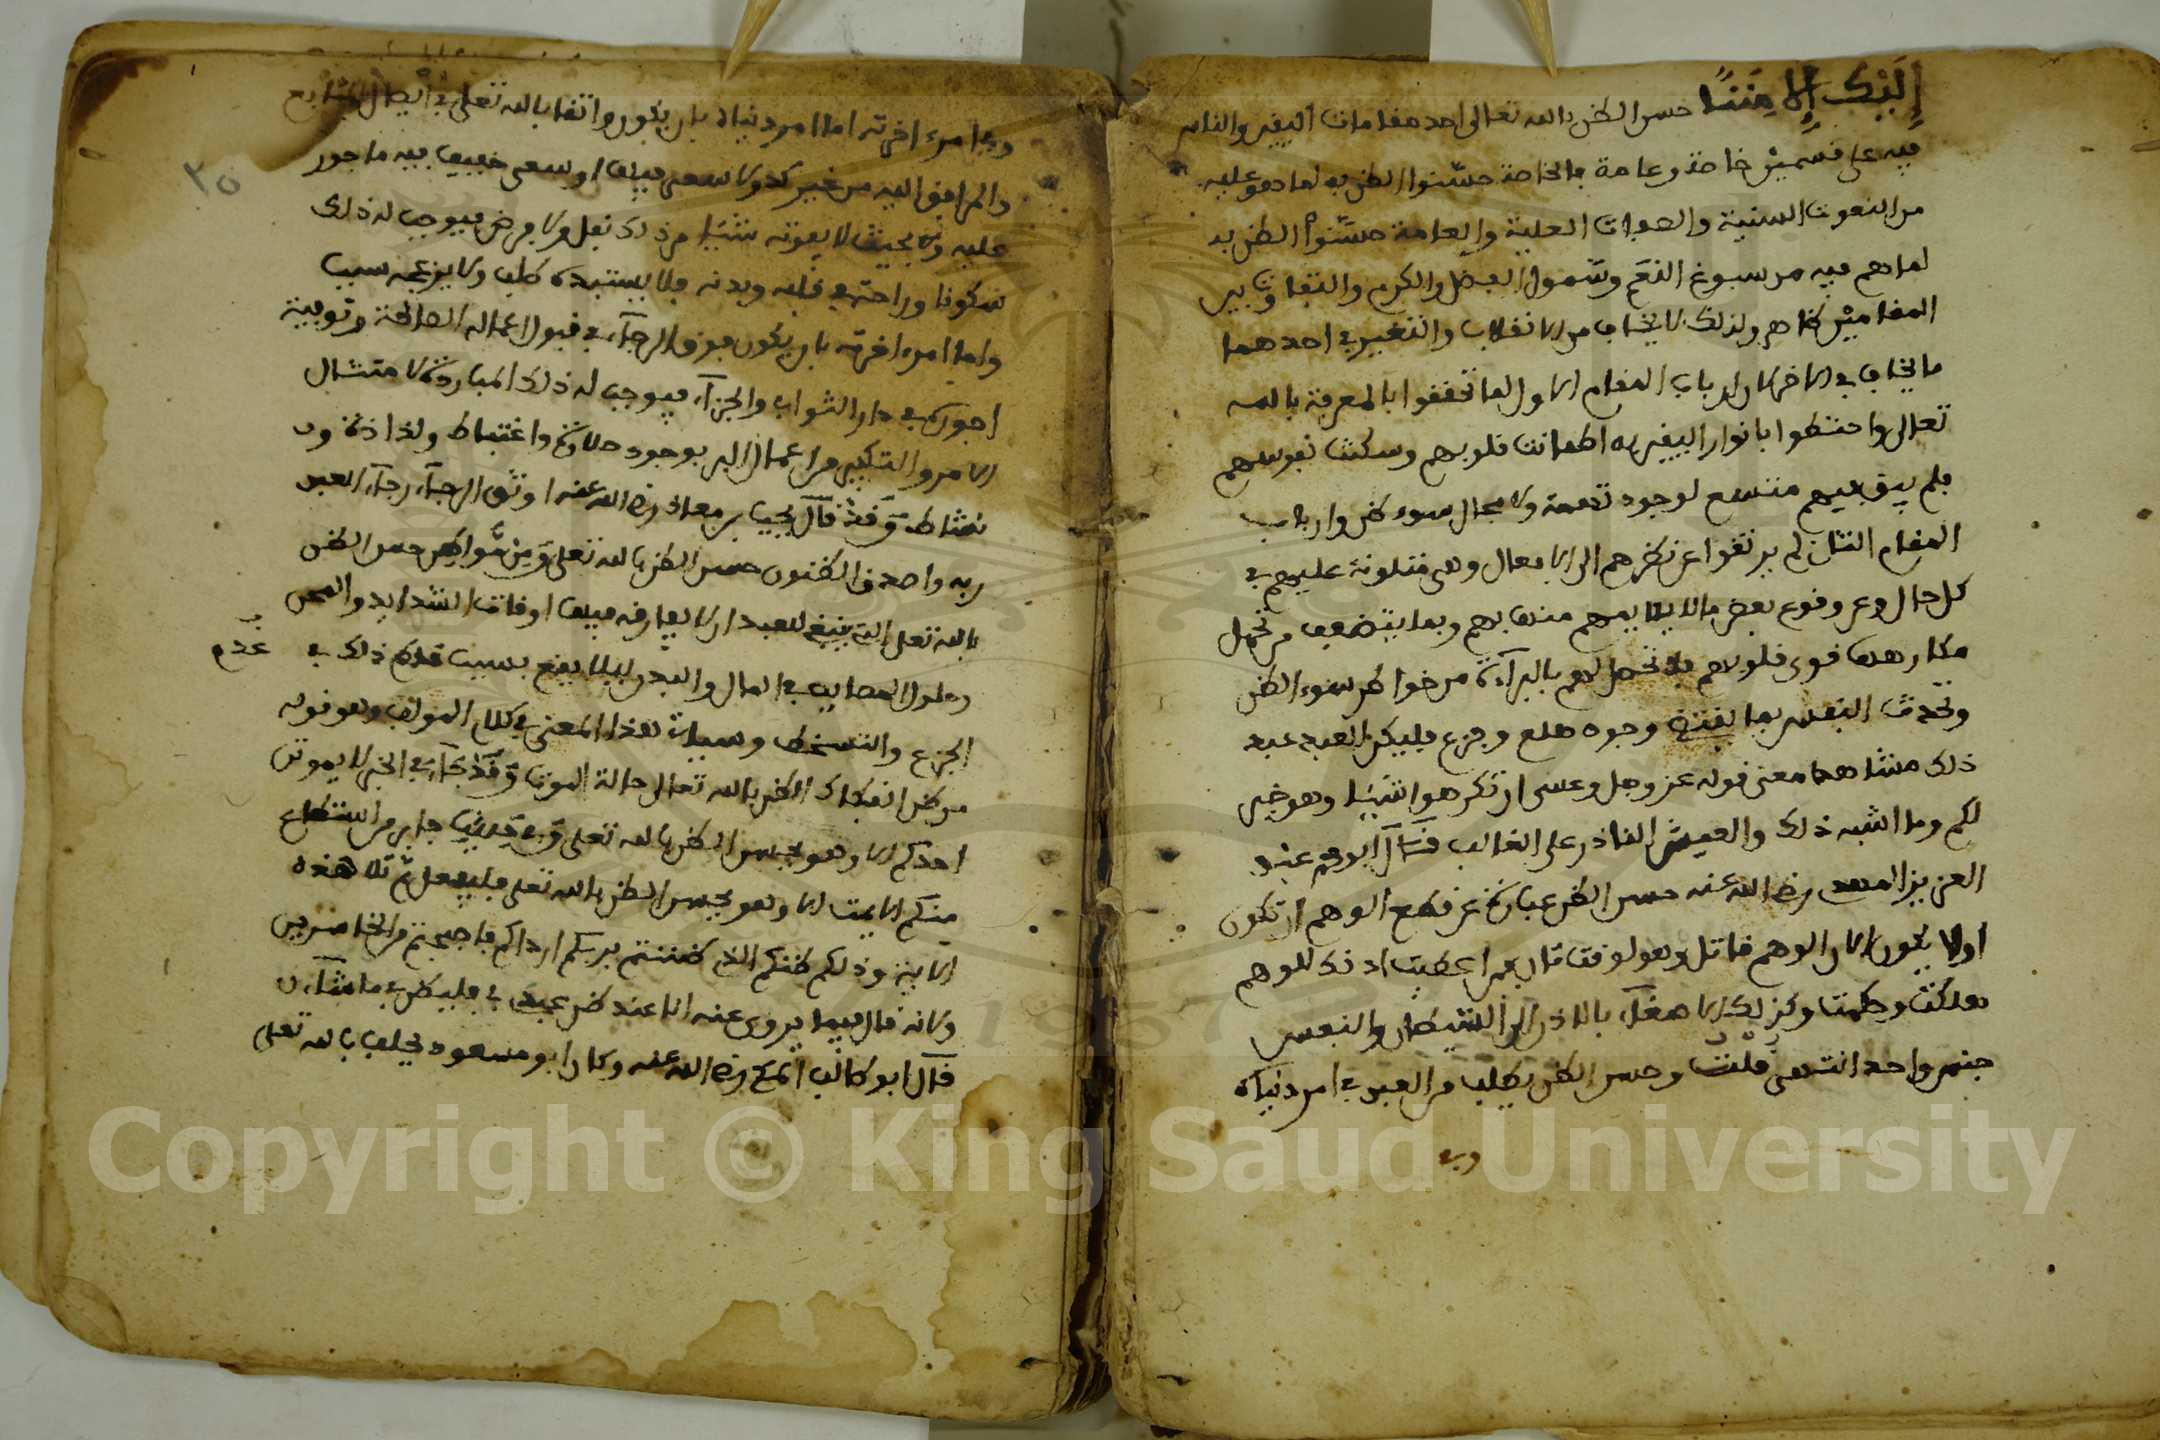 إليك إلا مننا حسن الظن بالله تعالى احد مقامات اليقين والناس
فيه على قسمين خاصة وعامة فالخاصة حسنوا الظن به لما هو عليه
من النعوت السنية والصفات العلية والعامة حسنوا الظن به
لما هم فيه من سبوغ النعم وشمول الفضل والكرم والتفاوت بين
المقامين ظاهر ولذلك لا يخاف من الانقلاب والتغير في احدهما
ما يخاف في الاخر لان ارباب المقام الاول لما تحققوا بالمعرفة بالله
تعالى واحتظوا بانوار اليقين به اطمانت قلوبهم وسكنت نفوسهم
فلم يبق فيهم متسع لوجود تهمة ولا مجال سوء ظن وارباب
المقام الثاني لم يرتقوا عن نظرهم الى الافعال وهي متلونة عليهم في
كل حال وعن وقوع بعض ما لا يلايمهم منها بهم وبما يتضعف من تحمل
مكارهها قوى قلوبهم فلا تحصل لهم بالبراءة من خواطر سوء الظن
وتحدث النفس بما يقتضي وجود هلع وجزع فليكن العبد عند
ذلك مشاهدا معنى قوله عز وجل وعسى ان تكرهوا شيئا وهو خير
لكم وما اشبه ذلك والعيش النادر على الغالب قال ابو محمد عبد
العزيز المهدوي رضي الله عنه حسن الظن عبارة عن قطع الوهم ان تكون
اولا يكون الان الوهم قاتل وهو لوقت ثان فمن اعطيت اذنك للوهم
هلكت وحكمت وكذلك الاصغاء بالاذن الى الشيطان والنفس
جنس واحد انتهى قلت وحسن الظن يطلب من العبد في امر دنياه
وفي
وفي امر اخرته اما امر دنياه بان يكون واثقا بالله تعلى في ايصال المنابع
والمرافق اليه من غير كد ولا سعي فيها او سعي خفيف فيه ماجور
عليه وبحيث لا يفوته شيئا من ذلك نفل ولا فرض فيوجب له ذلك
سكونا وراحة في قلبه وبدنه فلا يستبده طلب ولا يزعجه سبب
واما امر اخرته بان يكون فوق الرجاء في قبول اعماله الصالحة وتوفية
اجوره في دار الثواب والجزاء فيوجب له ذلك المبادرة لامتثال
الامر والتكثير من اعمال البر بوجود حلاوة واغتباط ولذاذة و
نشاط وقد قال يحيى بن معاذ رضي الله عنه اوثق الرجاء رجاء العبد
ربه واصدق الظنون حسن الظن بالله تعلى ومن مواطن حسن الظن
بالله تعلى التي ينبغي للعبد ان لا يفارقه فيها اوقات الشدايد والمحن
وحلول المصايب في المال والبدن ليلا يقع بسبب عدم ذلك في
عدم
الجزع والتسخط وسيات هذا المعنى في كلام المولف وهو قوله
من ظن انفكاك الظن بالله تعالى حالة الموت وقد جاء في الخبر لا يموتن
احدكم الا وهو يحسن الظن بالله تعلى وفي حديث جابر من استطاع
منكم الا يمت الا وهو يحسن الظن بالله تعلى فليفعل ثم تلا هذه
الاية وذلكم ظنكم الذي ظننتم بربكم ارداكم فاصبحتم من الخاسرين
ولانه قال فيما يروى عنه انا عند ظن عبدي بي فليظن بي ما شاء
قال ابو طالب المكي رضي الله عنه وكان ابو مسعود يحلف بالله تعلى
٣٥